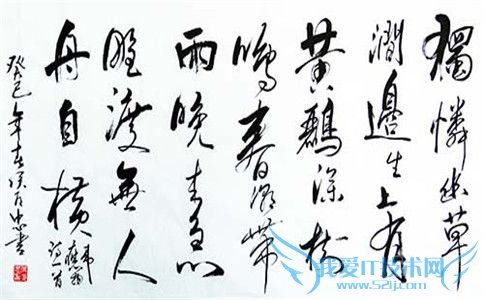 獨憐幽草
澗邊生上有
黃鸝深樹
鳴春潮帶
雨晚来急
野渡無人
舟自横
韋應物詩一首
癸巳年春
我爱IT技术网
www.52ij.com